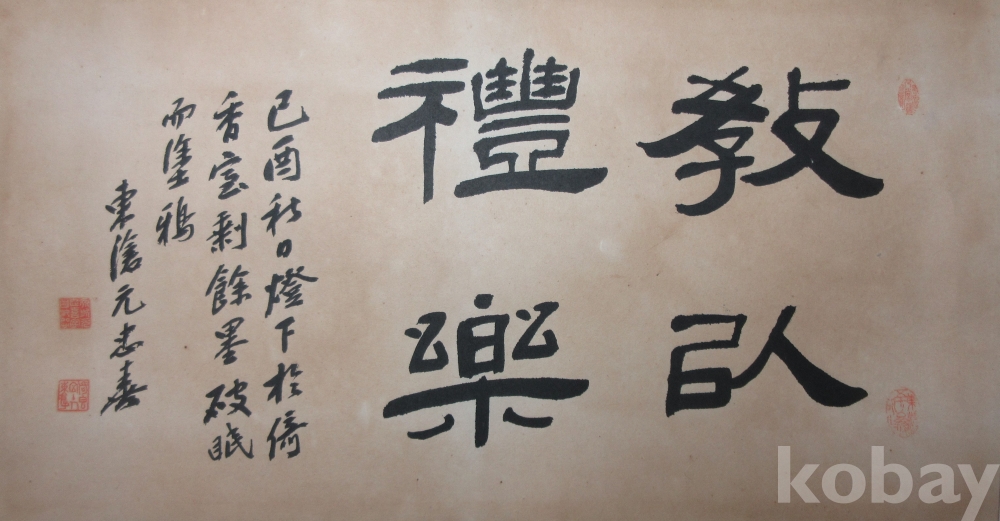 教以
禮樂
己酉秋日燈下於倚
香室剩餘墨破眠
而塗鴉
東滄元志春
kobay